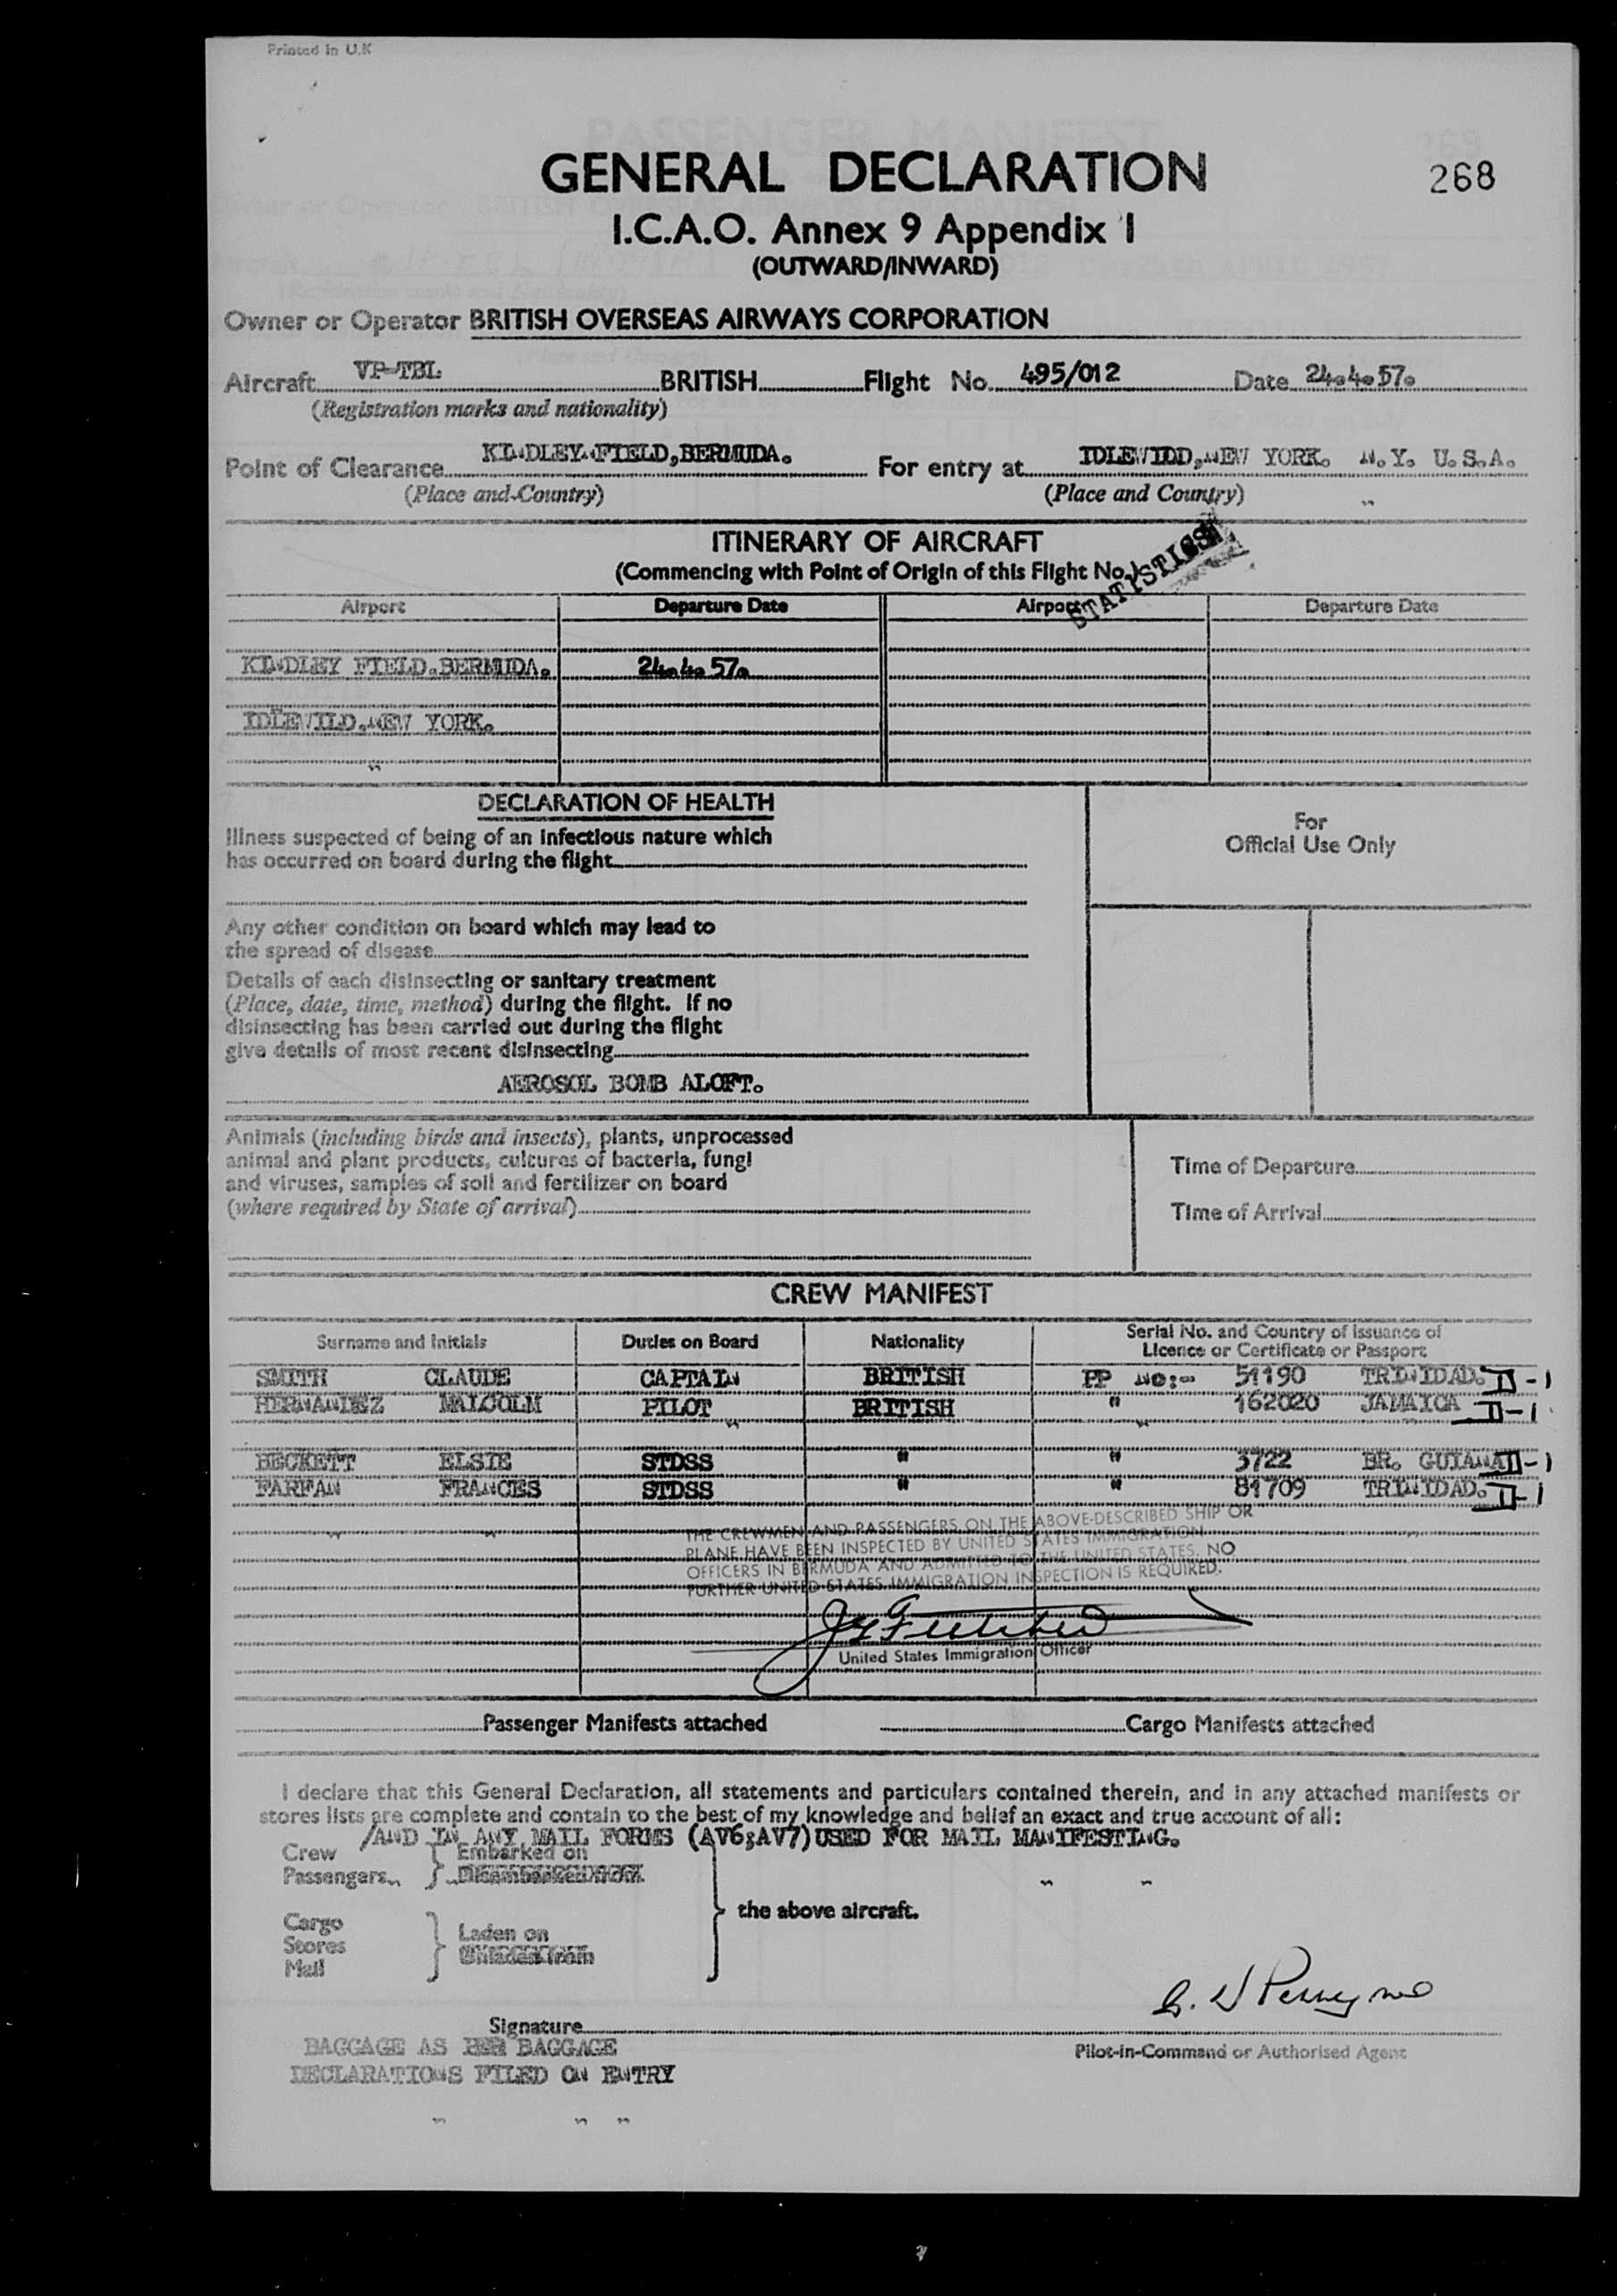 Printed in U.K
GENERAL DECLARATION
268
I.C.A.O. Annex 9 Appendix 1
(OUTWARD/INWARD)
Owner or Operator BRITISH OVERSEAS AIRWAYS CORPORATION
Aircraft VP-TBL BRITISH Flight No. 495/012 Date 24.4.57.
(Registration marks and nationality)
Point of Clearance KINDLEY FIELD, BERMUDA. For entry at IDLEWILD, NEW YORK. N.Y. U.S.A.
(Place and Country) (Place and Country)
ITINERARY OF AIRCRAFT
(Commencing with Point of Origin of this Flight No.)
STATISTICS
Airport Departure Date Airport Departure Date
KINDLEY FIELD.BERMUDA. 24.4.57.
IDLEWILD.NEW YORK.
DECLARATION OF HEALTH
For
Official Use Only
Illness suspected of being of an infectious nature which
has occurred on board during the flight
Any other condition on board which may lead to
the spread of disease
Details of each disinsecting or sanitary treatment
(Place, date, time, method) during the flight. If no
disinsecting has been carried out during the flight
give details of most recent disinsecting
AEROSOL BOMB ALOFT.
Animals (including birds and insects), plants, unprocessed
animal and plant products, cultures of bacteria, fungi
and viruses, samples of soil and fertilizer on board
(where required by State of arrival)
Time of Departure
Time of Arrival
CREW MANIFEST
Surname and Initials Duties on Board Nationality Serial No. and Country of Issuance of
Licence or Certificate or Passport
SMITH CLAUDE CAPTAIN BRITISH PP NO:- 51190 TRINIDAD. D-1
HERNANDEZ MALCOLM PILOT BRITISH " 162020 JAMAICA D-1
BECKETT ELSIE STDSS " " 3722 BR. GUIANA D-1
FARFAN FRANCES STDSS " " 81709 TRINIDAD. D-1
THE CREWMEN AND PASSENGERS ON THE ABOVE-DESCRIBED SHIP OR
PLANE HAVE BEEN INSPECTED BY UNITED STATES IMMIGRATION
OFFICERS IN BERMUDA AND ADMITTED TO THE UNITED STATES. NO
FURTHER UNITED STATES IMMIGRATION INSPECTION IS REQUIRED.
United States Immigration Officer
Passenger Manifests attached Cargo Manifests attached
I declare that this General Declaration, all statements and particulars contained therein, and in any attached manifests or
stores lists are complete and contain to the best of my knowledge and belief an exact and true account of all:
/AND IN ANY MAIL FORMS (AV6;AV7) USED FOR MAIL MANIFESTING.
Crew Embarked on
Passengers
the above aircraft.
Cargo
Stores
Mail
Laden on
Unladen from
Signature
Pilot-in-Command or Authorised Agent
BAGGAGE AS PER BAGGAGE
DECLARATIONS FILED ON ENTRY